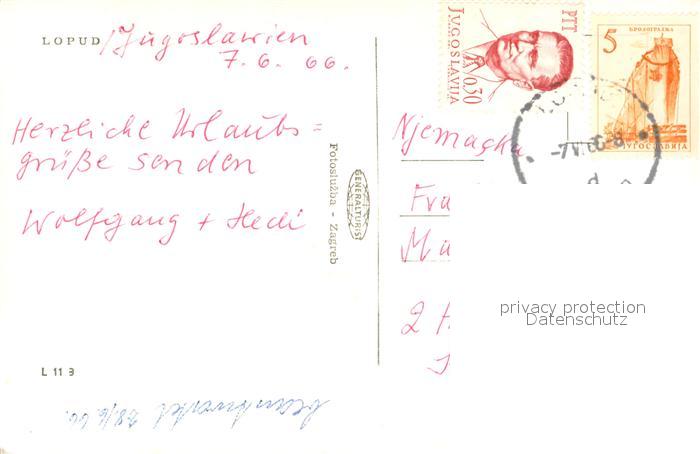 LOPUD /Jugoslawien
7.6.66.
Herzliche Urlaubs=
grüße senden
Wolfgang + Hedi
L 11 3
Fotoslužba - Zagreb
GENERALTURIST
PTT
JUGOSLAVIJA
0,30
5
БРОДОГРАДЊА
ЈУГОСЛАВИЈА
-7.VI.66-8
Njemačka
Fra
2 H
privacy protection
Datenschutz
28/6.66.